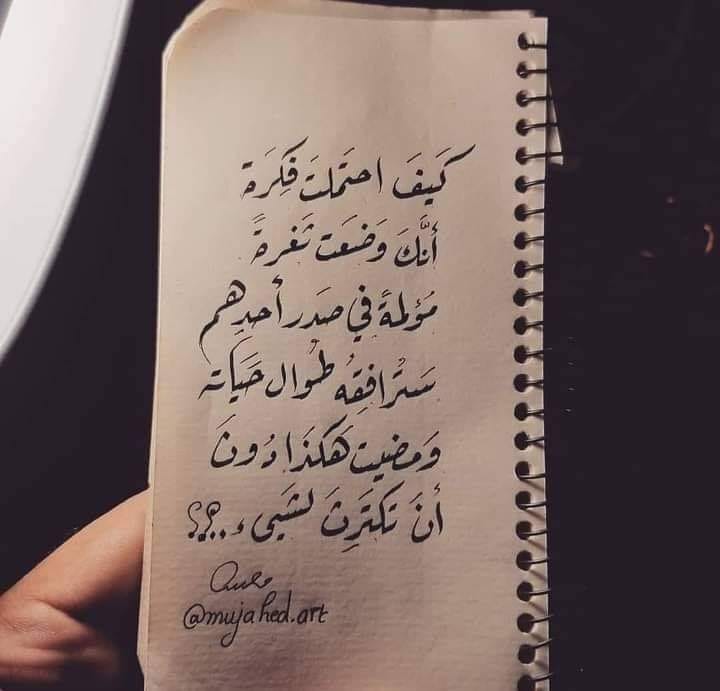 كَيفَ احتَملتَ فِكرَة
أنَّكَ وَضعَت ثَغرةً
مُؤلمةً في صَدر أحدِهم
سَتُرافِقهُ طُوال حَيَاته
وَمضيت هَكذَا دُونَ
أنَ تَكتَرِثَ لشَيىء..؟؟
@mujahed.art